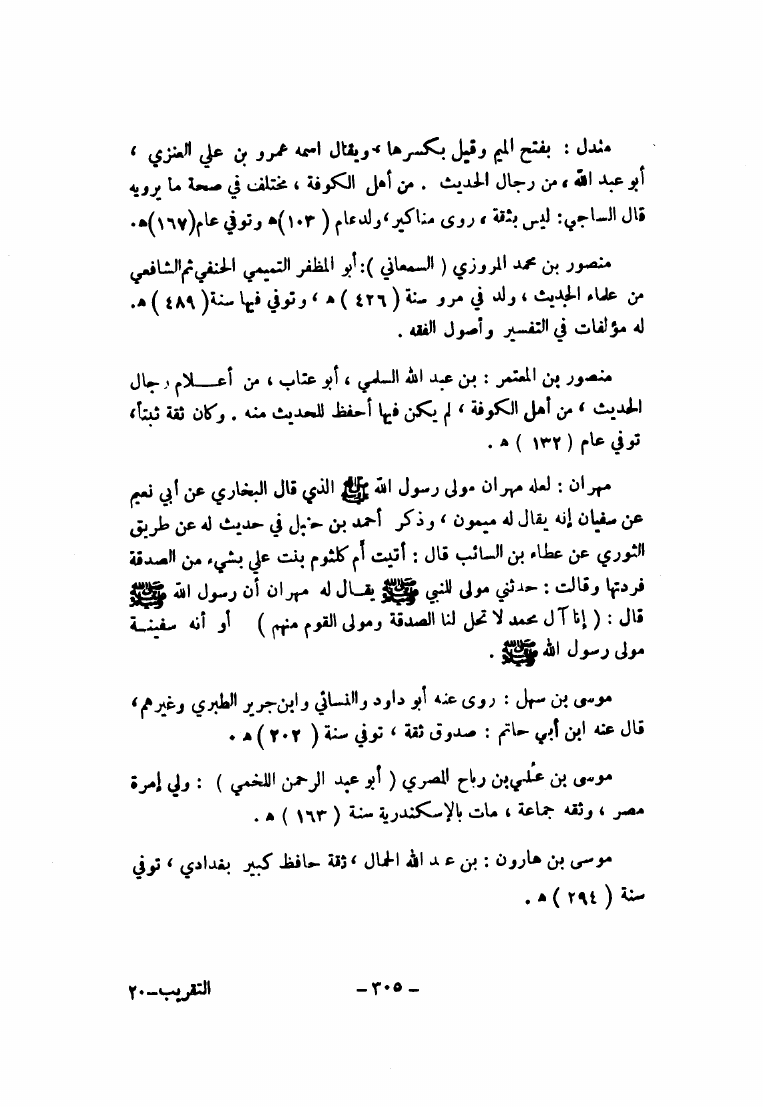 مندل : بفتح الميم وقيل بكسرها ، ويقال اسمه عمرو بن علي العنزي ،
أبو عبد الله ، من رجال الحديث . من أهل الكوفة ، مختلف في صحة ما يرويه
قال الساجي : ليس بثقة ، روى مناكير ، ولد عام ( ١٠٣ ) ه وتوفي عام (١٦٧) ه .
منصور بن محمد المروزي ( السمعاني ) : أبو المظفر التميمي الحنفي ثم الشافعي
من علماء الحديث ، ولد في مرو سنة ( ٤٢٦ ) ه ، وتوفي فيها سنة ( ٤٨٩ ) ه .
له مؤلفات في التفسير وأصول الفقه .
منصور بن المعتمر : بن عبد الله السلمي ، أبو عتاب ، من أعـــلام رجال
الحديث ، من أهل الكوفة ، لم يكن فيها أحفظ للحديث منه . وكان ثقة ثبتاً ،
توفي عام ( ١٣٢ ) ه .
مهران : لعله مهران مولى رسول الله ﷺ الذي قال البخاري عن أبي نعيم
عن سفيان إنه يقال له ميمون ، وذكر أحمد بن حنبل في حديث له عن طريق
الثوري عن عطاء بن السائب قال : أتيت أم كلثوم بنت علي بشيء من الصدقة
فردتها وقالت : حدثني مولى للنبي ﷺ يقــال له مهران أن رسول الله ﷺ
قال : ( إنا آل محمد لا تحل لنا الصدقة ومولى القوم منهم ) أو أنه سفينــة
مولى رسول الله ﷺ .
موسى بن سهل : روى عنه أبو داود والنسائي وابن جرير الطبري وغيرهم ،
قال عنه ابن أبي حاتم : صدوق ثقة ، توفي سنة ( ٢٠٢ ) ه .
موسى بن عُلي بن رباح المصري ( أبو عبد الرحمن اللخمي ) : ولي إمرة
مصر ، وثقه جماعة ، مات بالإسكندرية سنة ( ١٦٣ ) ه .
موسى بن هارون : بن عبد الله الحمال ، ثقة حافظ كبير بغدادي ، توفي
سنة ( ٢٩٤ ) ه .
– ٣٠٥ –
التقريب–٢٠